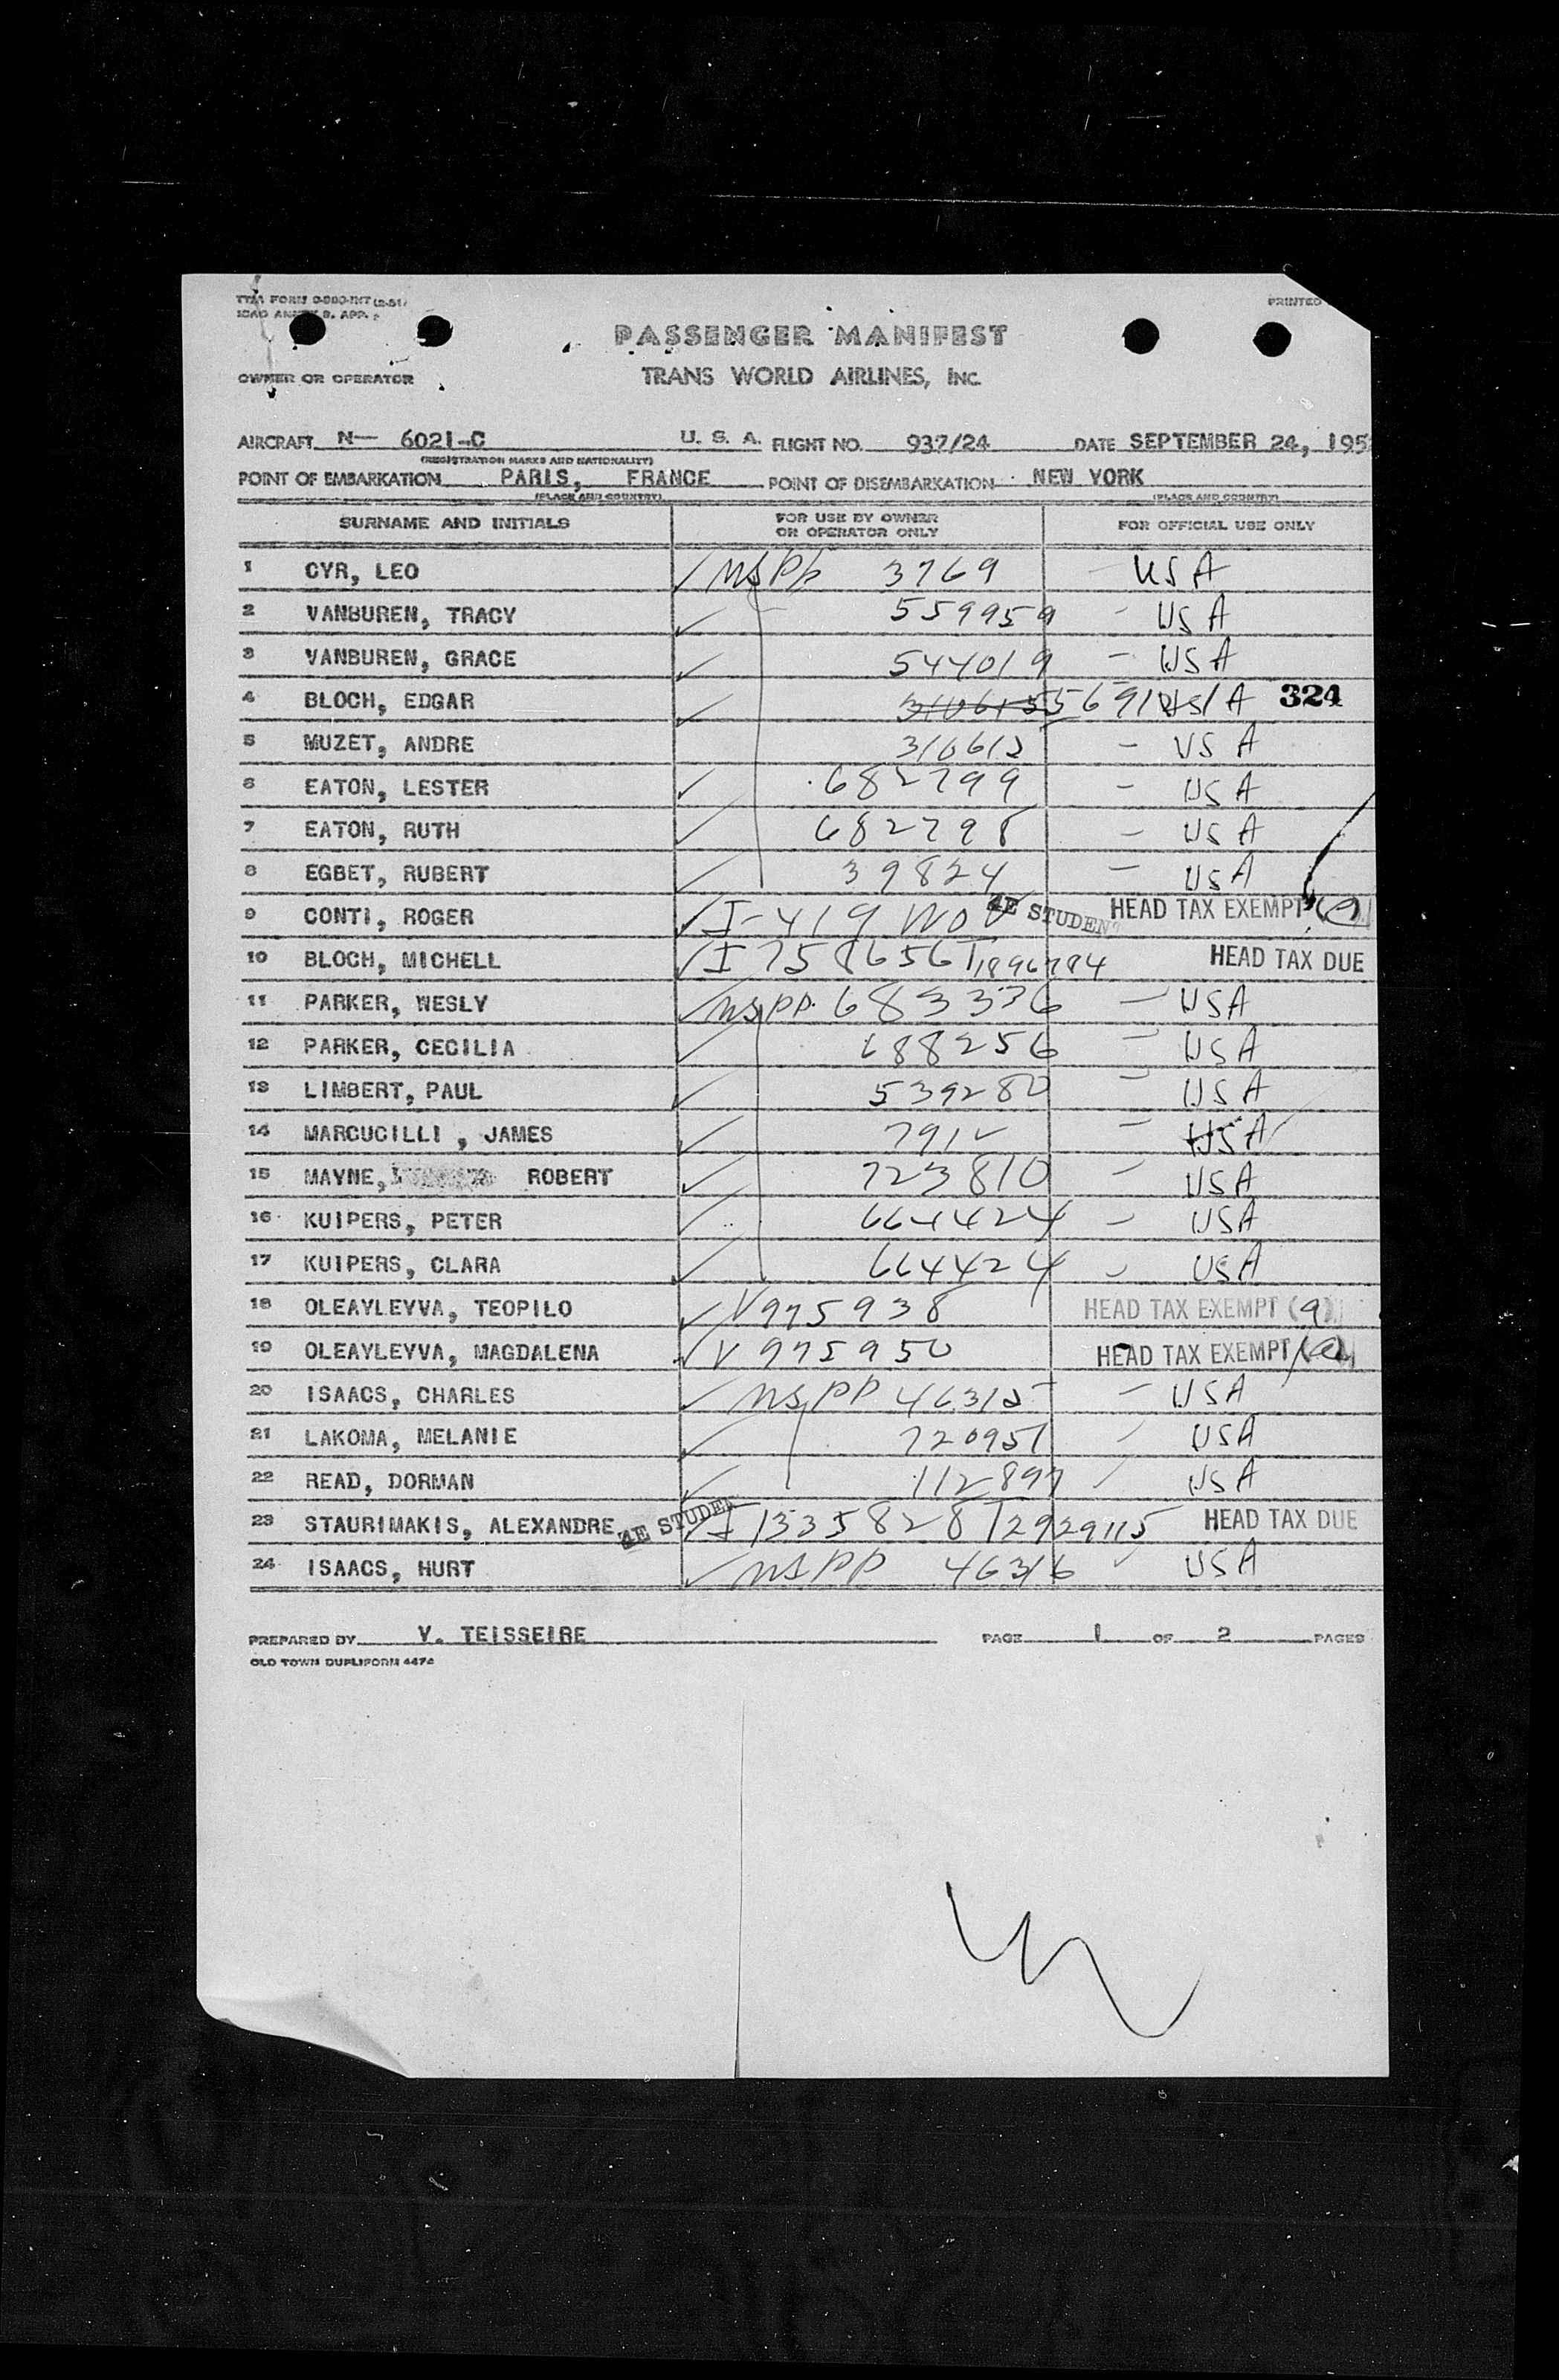 TWA FORM
ICAO ANNEX 9. APP.
PRINTED
PASSENGER MANIFEST
OWNER OR OPERATOR
TRANS WORLD AIRLINES, INC.
AIRCRAFT N— 6021-C U. S. A. FLIGHT NO. 937/24 DATE SEPTEMBER 24, 195
(REGISTRATION MARKS AND NATIONALITY)
POINT OF EMBARKATION PARIS, FRANCE POINT OF DISEMBARKATION NEW YORK
(PLACE AND COUNTRY) (PLACE AND COUNTRY)
SURNAME AND INITIALS FOR USE BY OWNER OR OPERATOR ONLY FOR OFFICIAL USE ONLY
1 CYR, LEO ✓ USPP 3769 — USA
2 VANBUREN, TRACY ✓ 559959 - USA
3 VANBUREN, GRACE ✓ 544019 — USA
4 BLOCH, EDGAR ✓ 5691 USA 324
5 MUZET, ANDRE 310612 — USA
6 EATON, LESTER ✓ 682799 — USA
7 EATON, RUTH ✓ 682798 — USA
8 EGBET, RUBERT ✓ 39824 — USA
9 CONTI, ROGER ✓ I-419 4E STUDENT HEAD TAX EXEMPT
10 BLOCH, MICHELL ✓ I 758656 T1896784 HEAD TAX DUE
11 PARKER, WESLY ✓ USPP 683336 — USA
12 PARKER, CECILIA ✓ 688256 — USA
13 LIMBERT, PAUL ✓ 539280 — USA
14 MARCUCILLI , JAMES ✓ 7912 — USA
15 MAYNE, ROBERT ✓ 723810 — USA
16 KUIPERS, PETER ✓ 664424 — USA
17 KUIPERS, CLARA ✓ 664424 — USA
18 OLEAYLEYVA, TEOPILO ✓ V975938 HEAD TAX EXEMPT (9)
19 OLEAYLEYVA, MAGDALENA ✓ V 975950 HEAD TAX EXEMPT
20 ISAACS, CHARLES ✓ USPP 46315 — USA
21 LAKOMA, MELANIE ✓ 720951 USA
22 READ, DORMAN ✓ 112897 USA
23 STAURIMAKIS, ALEXANDRE 4E STUDENT ✓ I 1335828 T2929115 HEAD TAX DUE
24 ISAACS, HURT ✓ USPP 46316 USA
PREPARED BY V. TEISSEIRE PAGE 1 OF 2 PAGES
OLD TOWN DUPLIFORM 4474